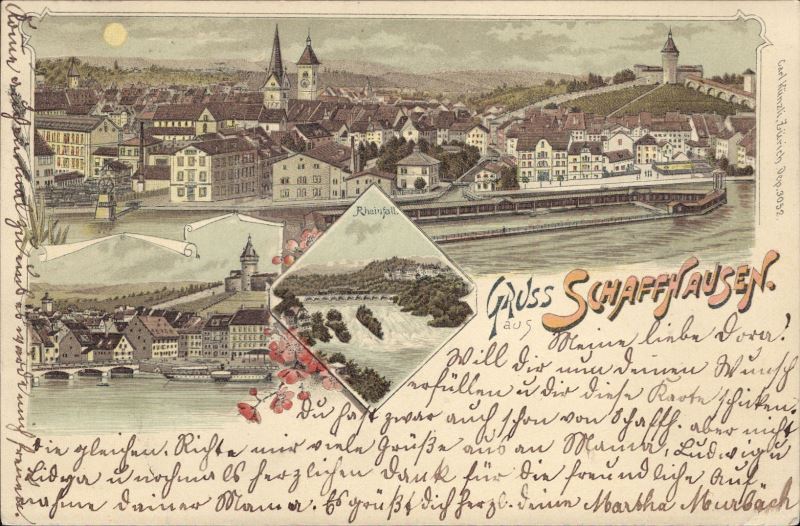 Carl Künzli, Zürich, Dep. 9032.
Rheinfall.
GRUSS
aus
SCHAFFHAUSEN.
Meine liebe Dora!
Will dir nun deinen Wunsch
erfüllen u dir diese Karte schicken.
Du hast zwar auch schon von Schaffh. aber nicht
die gleichen. Richte mir viele Grüße aus an Mama, Ludwig u
Lidya u nochmals herzlichen Dank für die freundliche Auf-
nahme deiner Mama. Es grüßt dich herzl. deine Martha Murbach